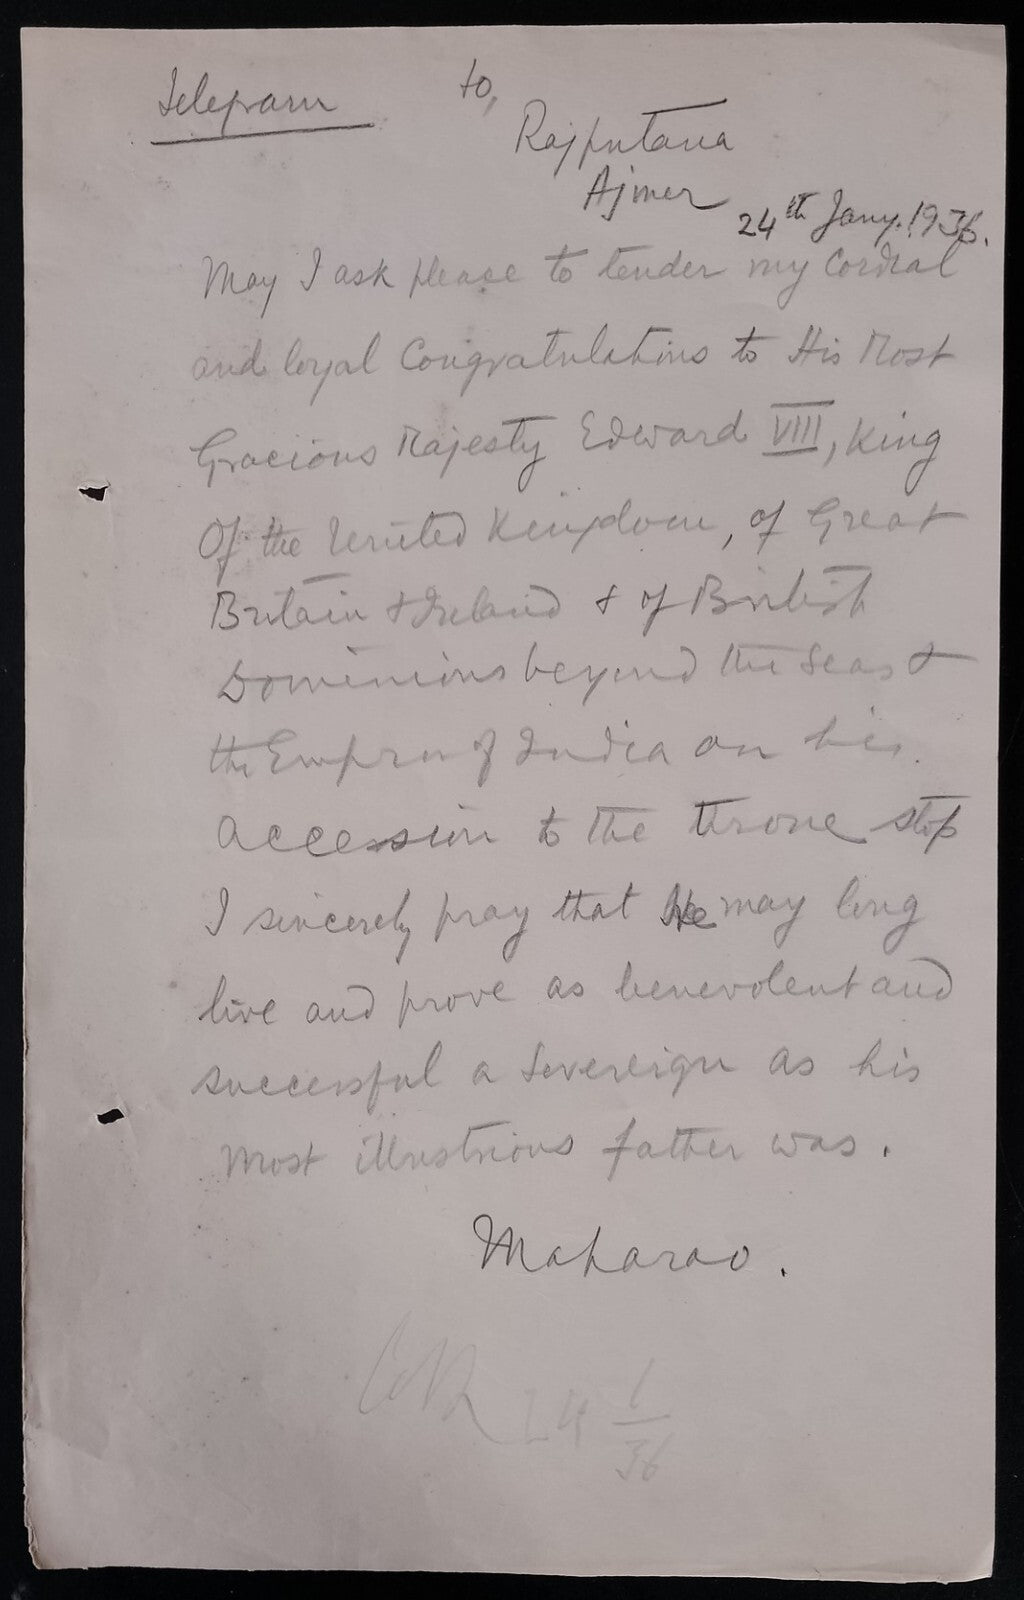 Telegram
to,
Rajputana
Ajmer
24th Jany. 1936.
May I ask please to tender my Cordial
and loyal Congratulations to His Most
Gracious Majesty Edward VIII, King
Of the United Kingdom, of Great
Britain & Ireland & of British
Dominions beyond the Seas &
the Emperor of India on his
accession to the throne stop
I sincerely pray that He may long
live and prove as benevolent and
successful a Sovereign as his
most illustrious father was.
Maharao.
24 1/36